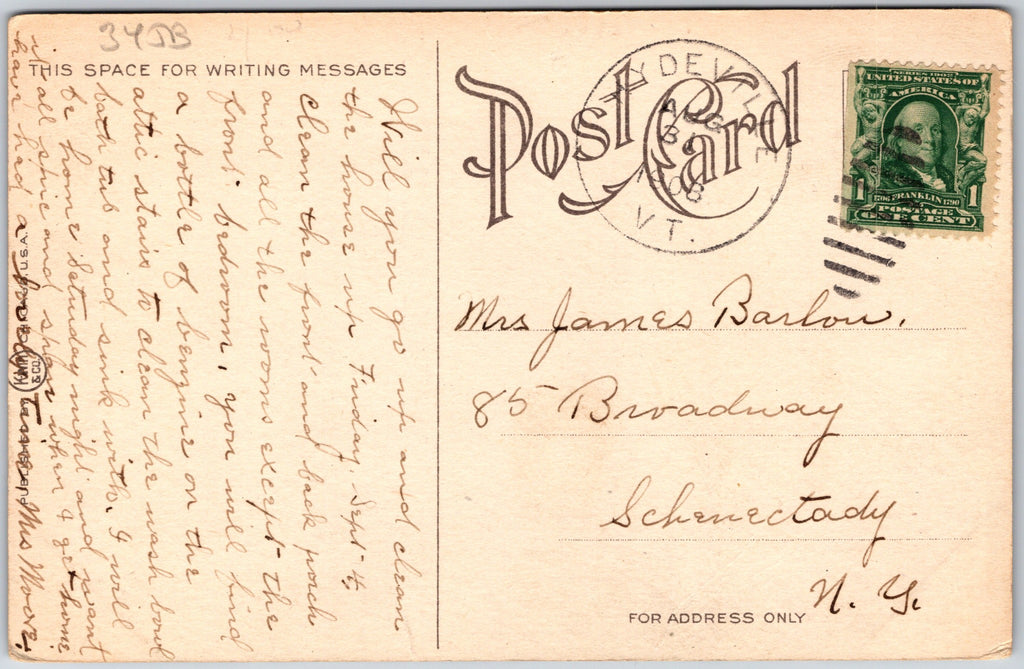 34JB
THIS SPACE FOR WRITING MESSAGES
Will you go up and clean
the house up Friday Sept-4,
clean the front and back porch
and all the rooms except the
front bedroom, you will find
a bottle of benzine on the
attic stairs to clean the wash bowl
bath tub and sink with. I will
be home Saturday night and want
it all spic and span when I get home
have had a
Mrs Moore.
U.S.A.
& CO.
Post Card
HYDEVILLE
AUG
31
1908
VT.
SERIES 1902
UNITED STATES OF
AMERICA
1706 FRANKLIN 1790
1 POSTAGE 1
ONE CENT
Mrs James Barlow.
85 Broadway
Schenectady
N. Y.
FOR ADDRESS ONLY